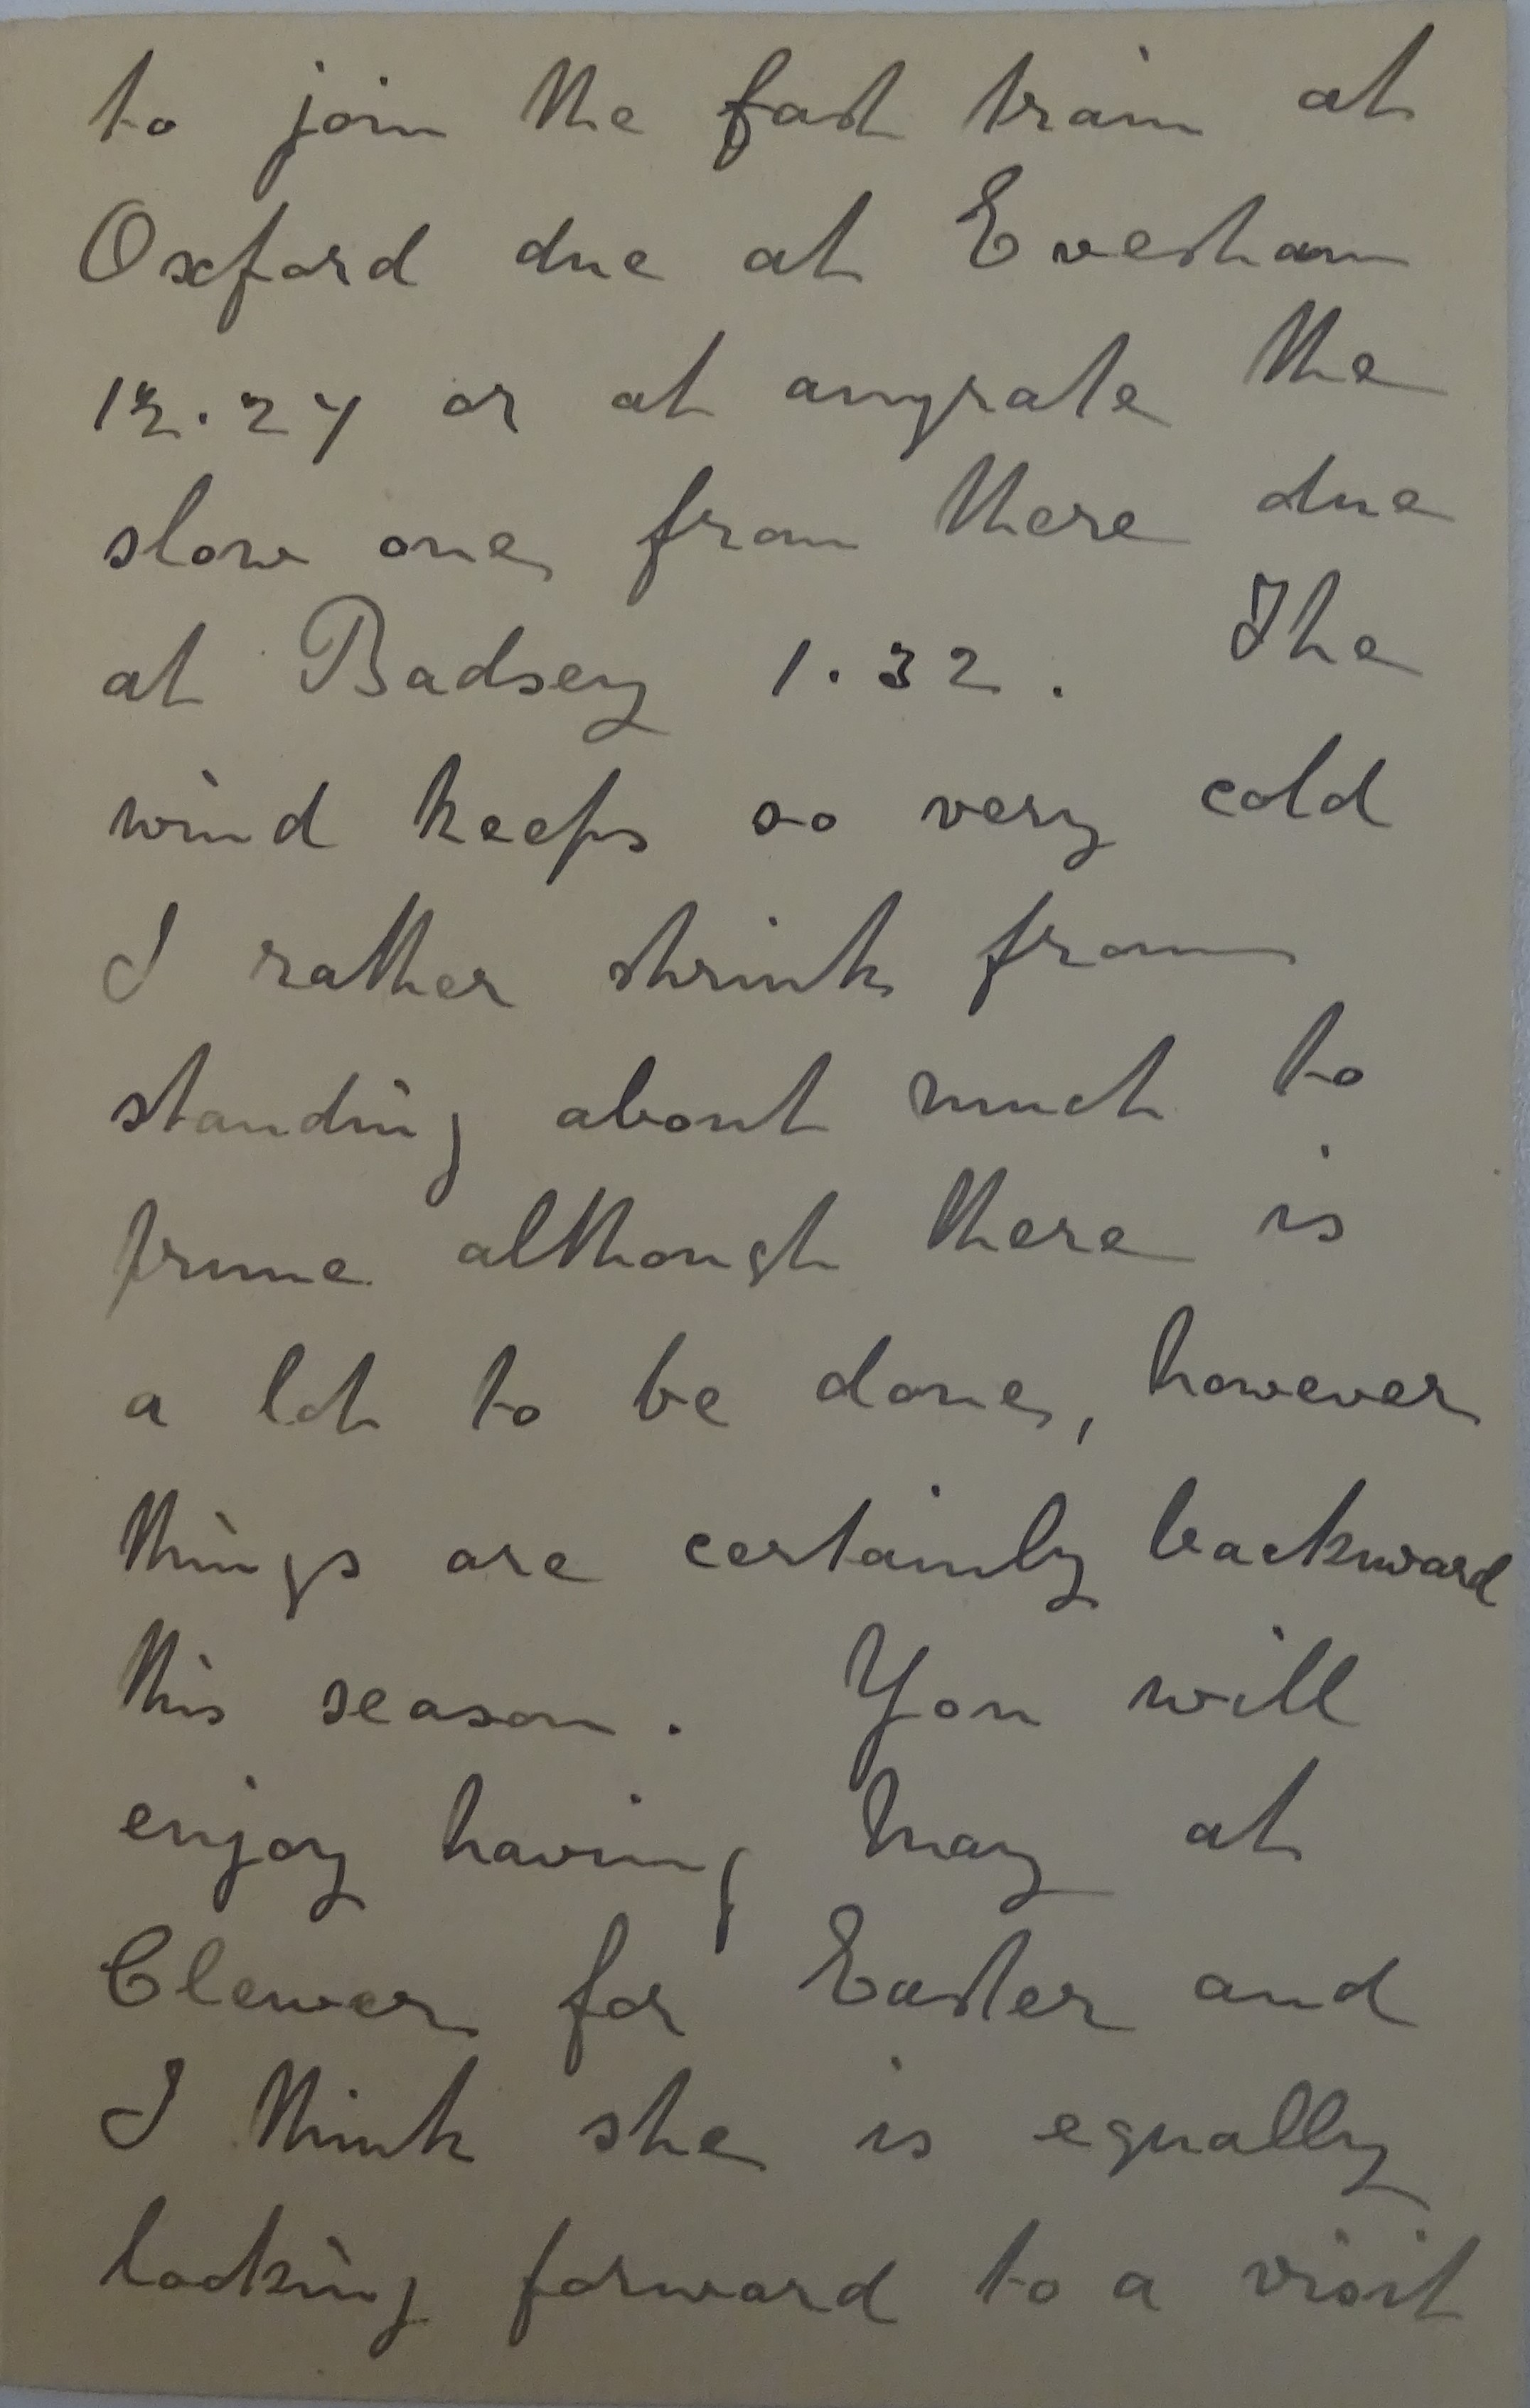 to join the fast train at
Oxford due at Evesham
12.27 or at anyrate the
slow one from there due
at Badsey 1.32. The
wind keeps so very cold
I rather shrink from
standing about much to
prune although there is
a lot to be done, however
things are certainly backward
this season. You will
enjoy having May at
Clewer for Easter and
I think she is equally
looking forward to a visit